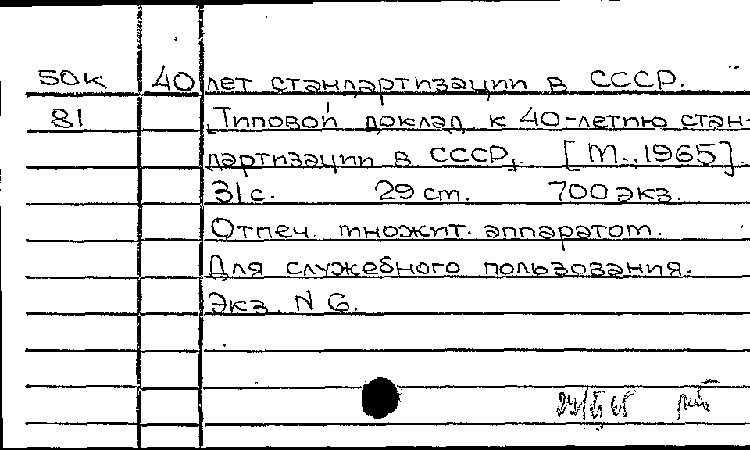 50к 40 лет стандартизации в СССР.
81 Типовой доклад к 40-летию стан-
дартизации в СССР. [М., 1965].
31 с. 29 см. 700 экз.
Отпеч. множит. аппаратом.
Для служебного пользования.
Экз. N 6.